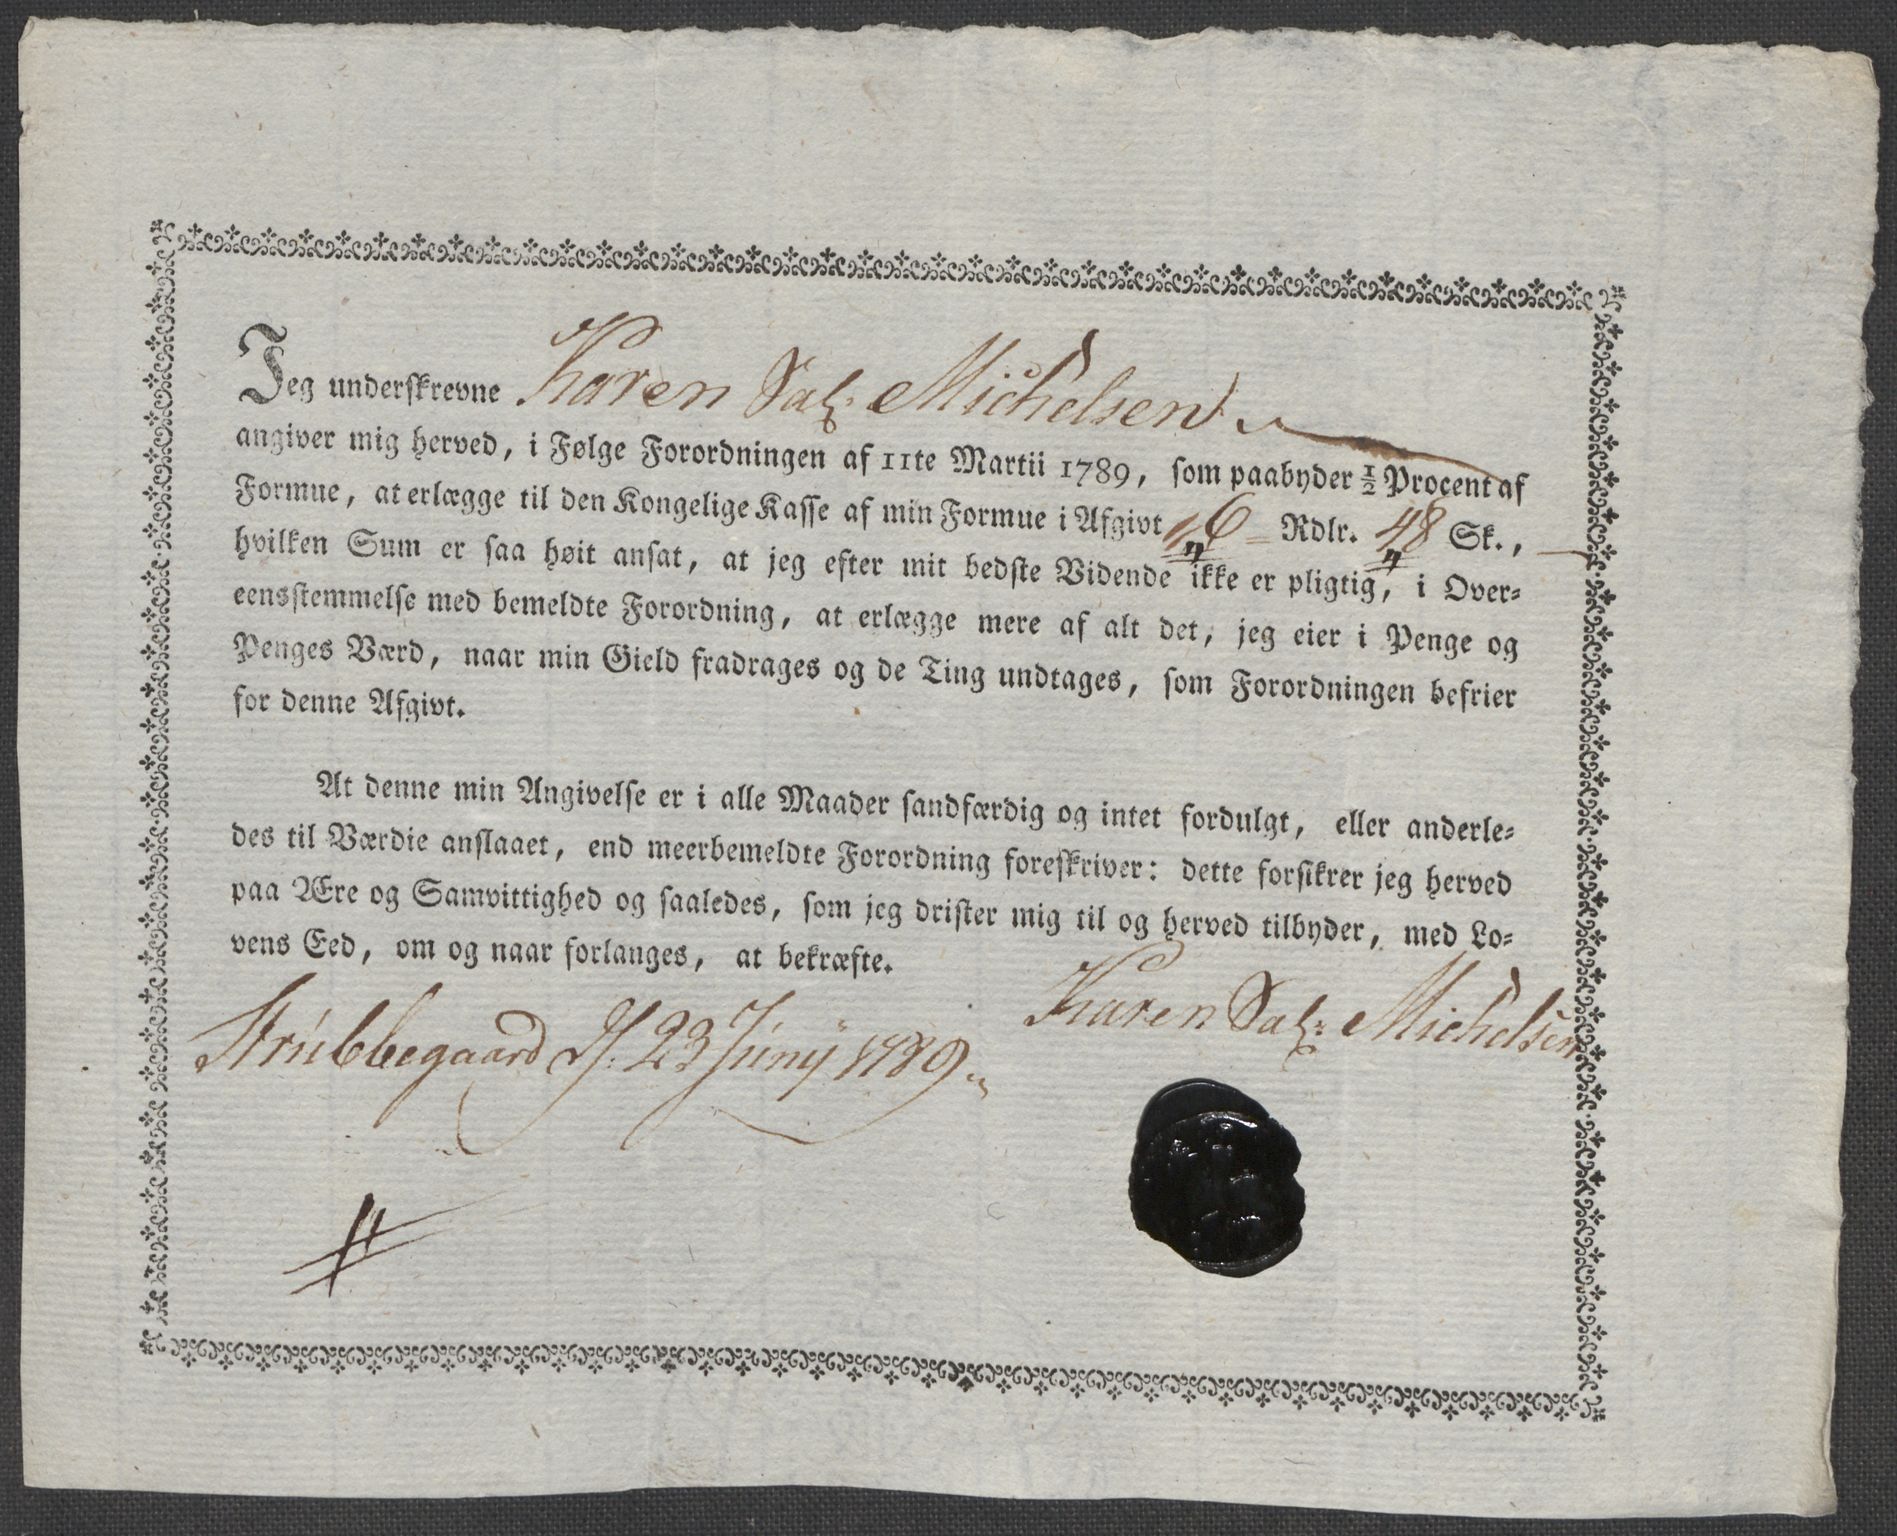 Jeg underskrevne Karen Sal: Michelsen
angiver mig herved, i Følge Forordningen af 11te Martii 1789, som paabyder ½ Procent af
Formue, at erlægge til den Kongelige Kasse af min Formue i Afgivt 16 Rdlr. 48 Sk.,
hvilken Sum er saa høit ansat, at jeg efter mit bedste Vidende ikke er pligtig, i Over-
eensstemmelse med bemeldte Forordning, at erlægge mere af alt det, jeg eier i Penge og
Penges Værd, naar min Gield fradrages og de Ting undtages, som Forordningen befrier
for denne Afgivt.
At denne min Angivelse er i alle Maader sandfærdig og intet fordulgt, eller anderle-
des til Værdie anslaaet, end meerbemeldte Forordning foreskriver: dette forsikrer jeg herved
paa Ære og Samvittighed og saaledes, som jeg drister mig til og herved tilbyder, med Lo-
vens Eed, om og naar forlanges, at bekræfte.
Karen Sal: Michelsen
Strübbegaard d. 23 Junÿ 1789